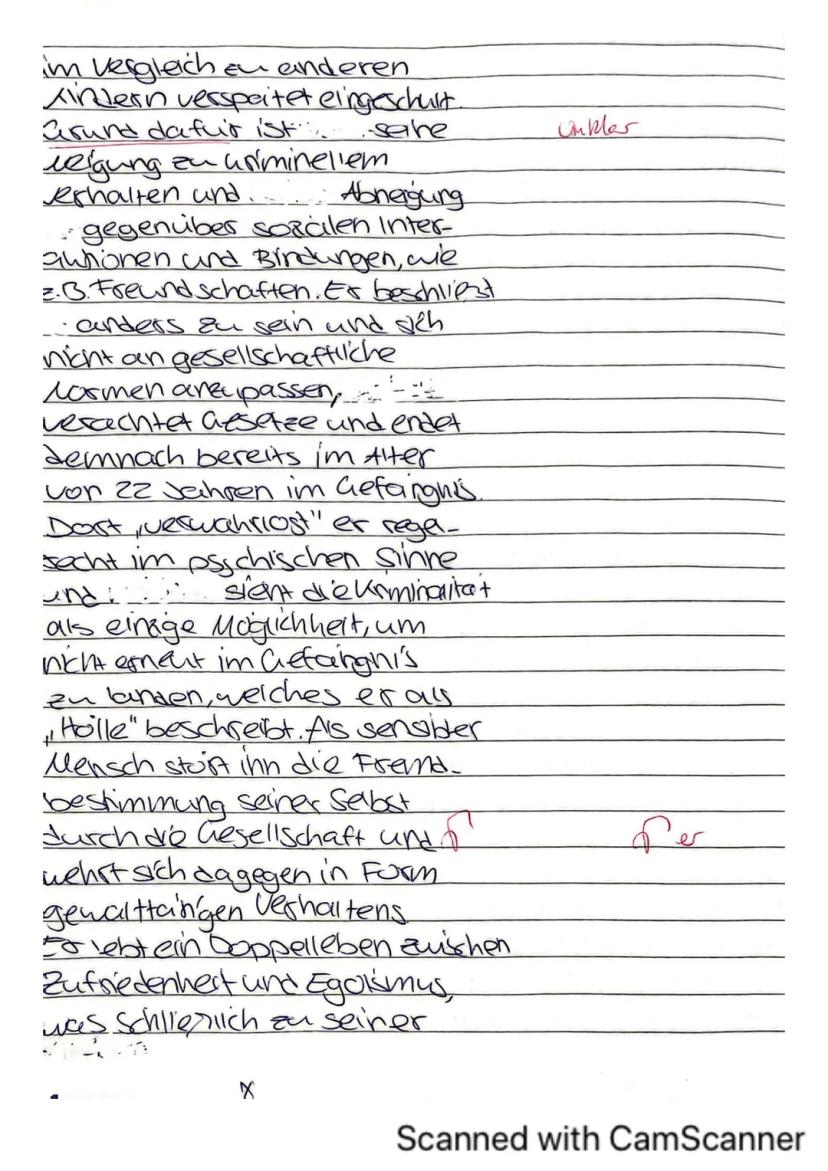 im Vergleich zu anderen
Kindern verspätet eingeschult.
Grund dafür ist seine
unklar
Neigung zu kriminellem
Verhalten und Abneigung
gegenüber sozialen Inter-
aktionen und Bindungen, wie
z.B. Freundschaften. Er beschließt
anders zu sein und sich
nicht an gesellschaftliche
Normen anzupassen,
verachtet Gesetze und endet
demnach bereits im Alter
von 22 Jahren im Gefängnis.
Dort „verwahrlost" er rege-
recht im psychischen Sinne
und sieht die Kriminalität
als einzige Möglichkeit, um
nicht erneut im Gefängnis
zu landen, welches er als
„Hölle" beschreibt. Als sensibler
Mensch stört ihn die Fremd-
bestimmung seiner Selbst
durch die Gesellschaft und
er
wehrt sich dagegen in Form
gewalttätigen Verhaltens.
Er lebt ein Doppelleben zwischen
Zufriedenheit und Egoismus,
was schließlich zu seiner
x
Scanned with CamScanner